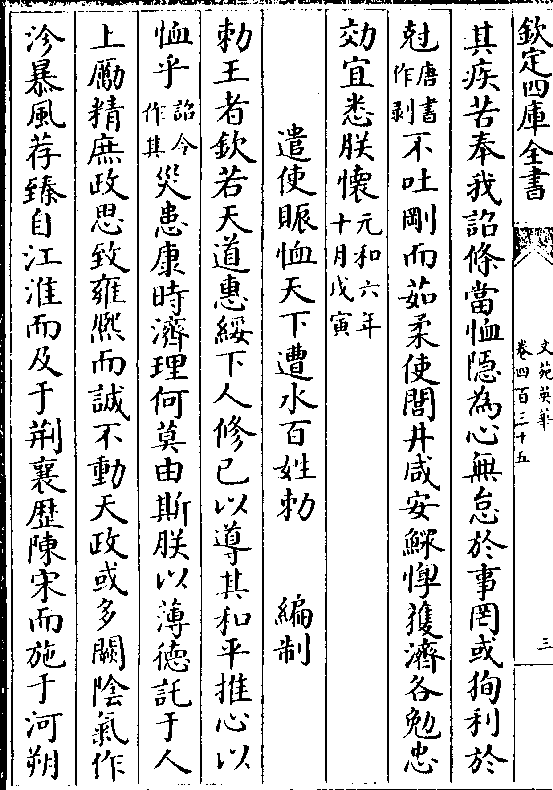 欽定四庫全書
文苑英華
卷四百三十五
三
其疾苦奉我詔條當恤隱為心無怠於事罔或狥利於
尅唐書作剥不吐剛而茹柔使閭井咸安鰥惸獲濟各勉忠
効宜悉朕懷元和六年十月戊寅
遣使賑恤天下遭水百姓勅 編制
勅王者欽若天道惠綏下人修已以導其和平推心以
恤乎詔令作其災患康時濟理何莫由斯朕以薄德託于人
上勵精庶政思致雍熙而誠不動天政或多闕陰氣作
沴暴風荐臻自江淮而及于荆襄歴陳宋而施于河朔